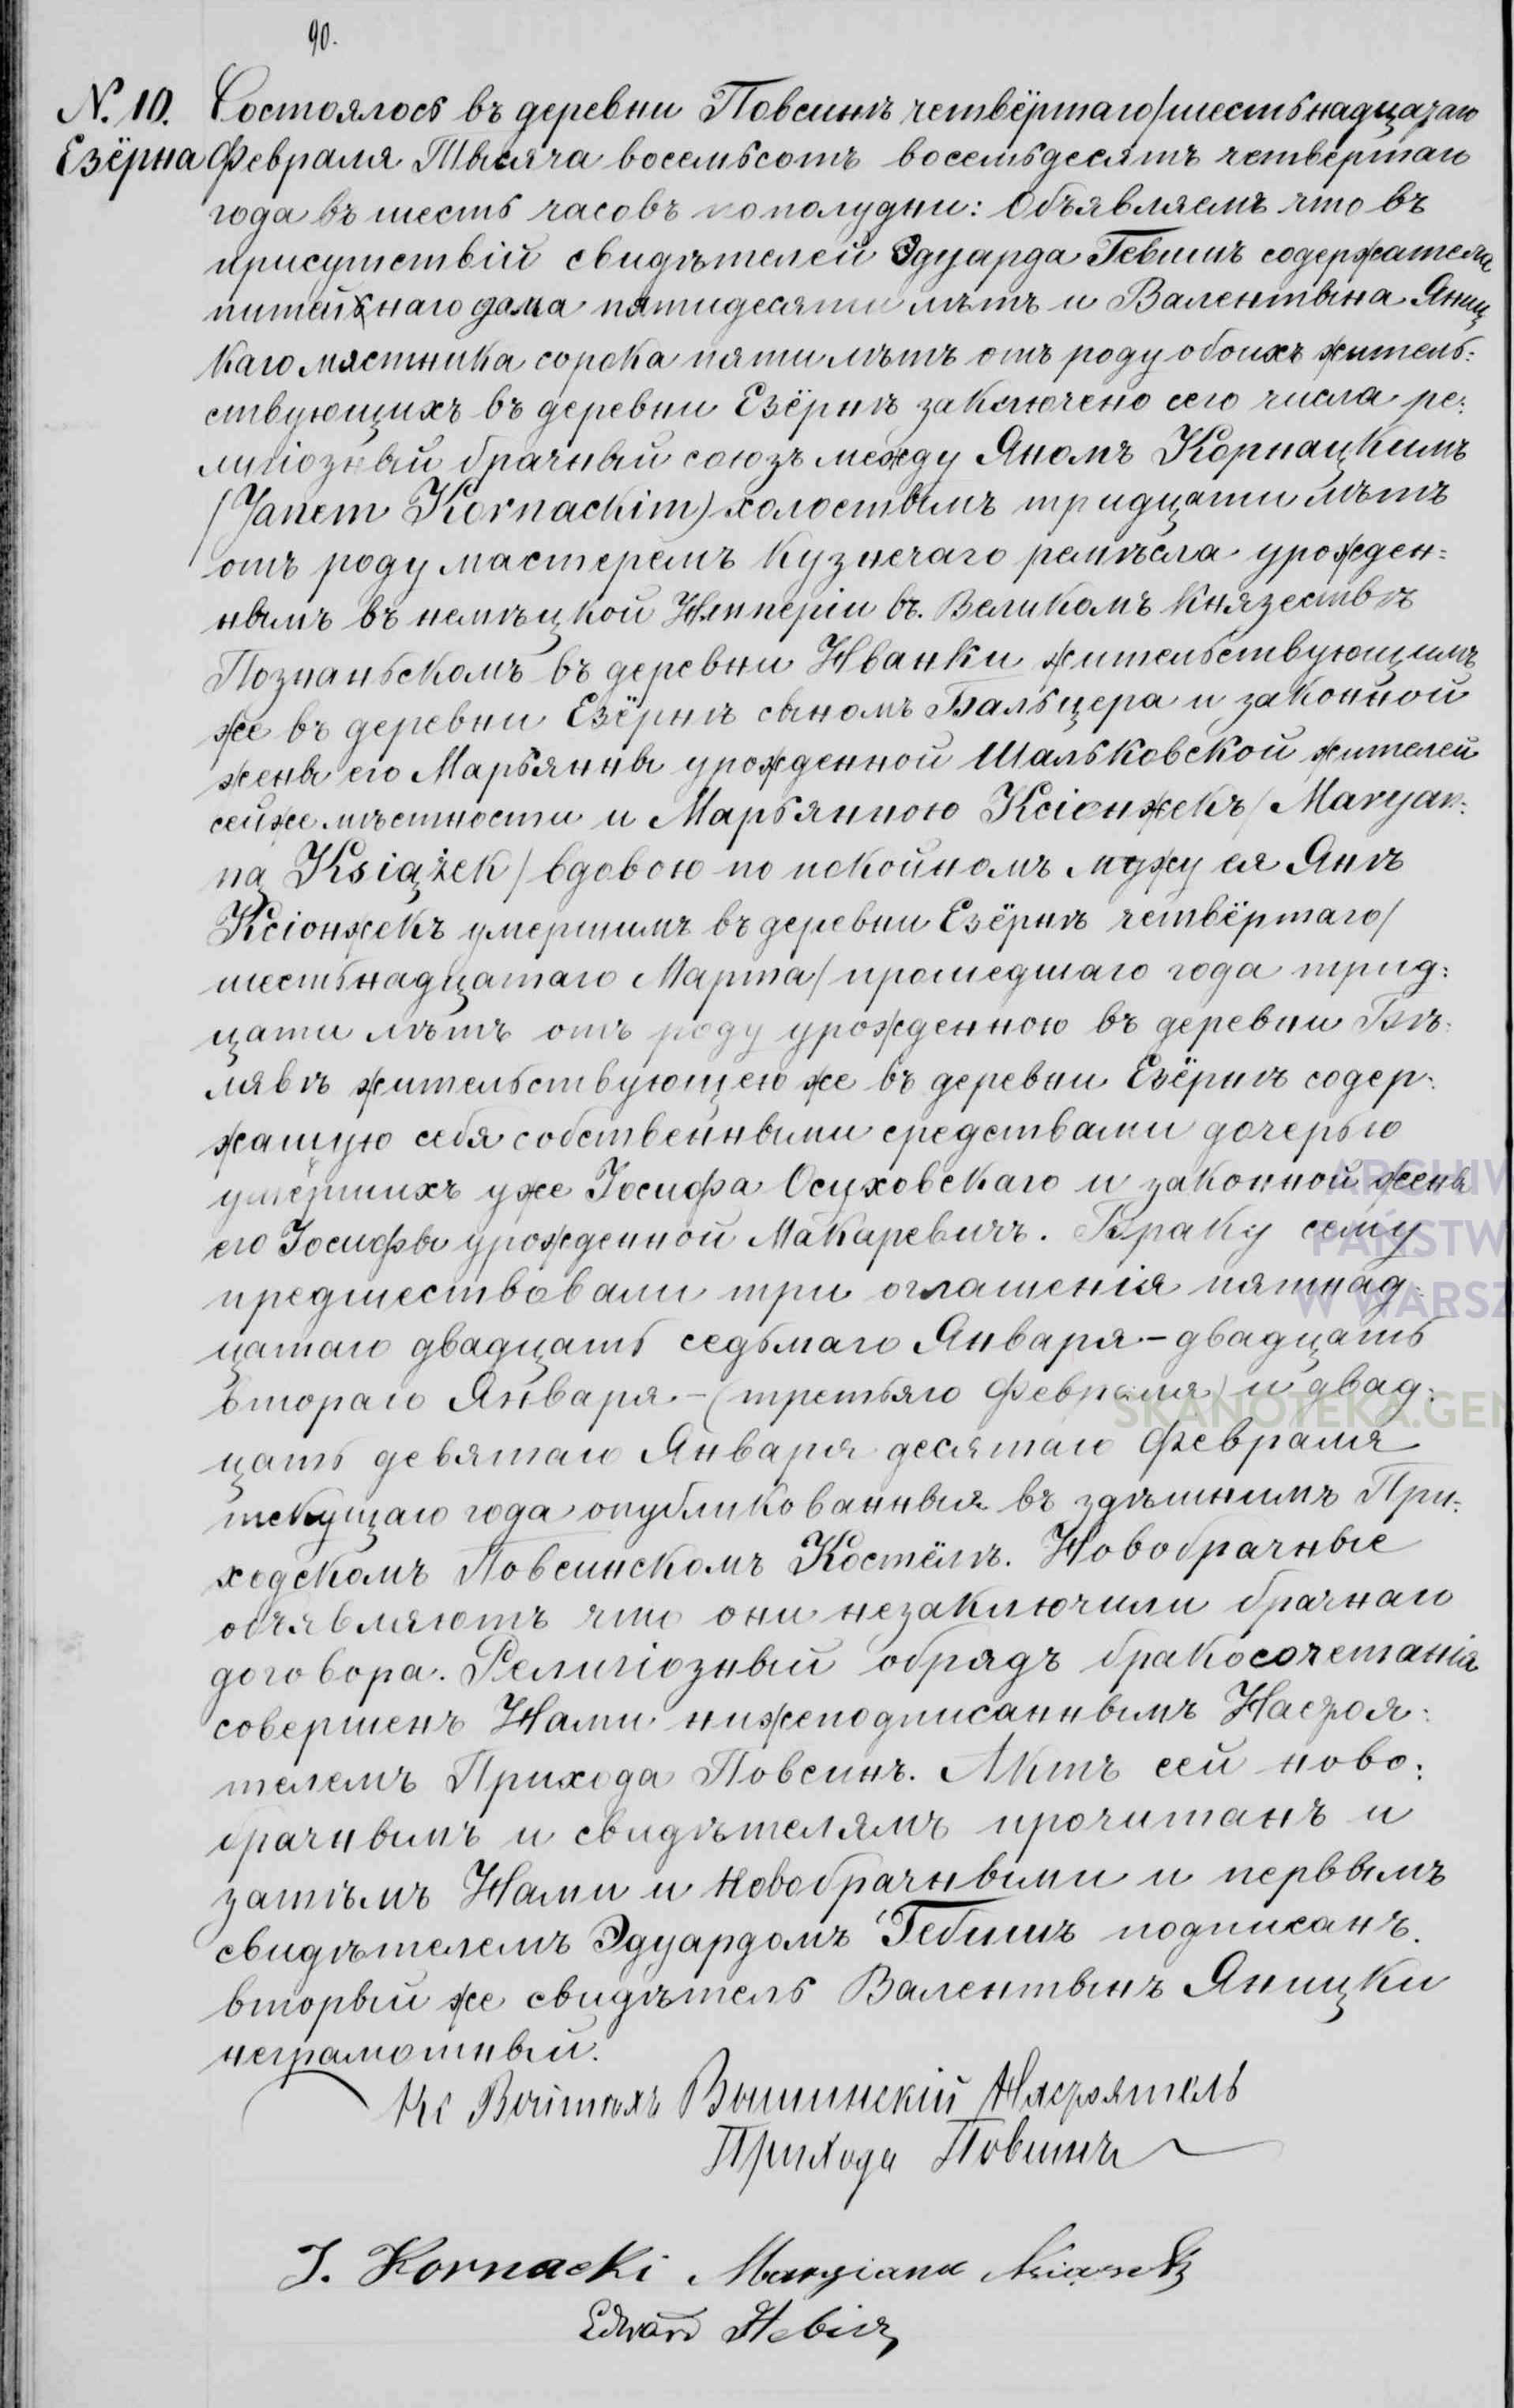 90.
N. 10. Состоялось въ деревни Повсинѣ четвёртаго/шестьнадцатаго
Езёрна Февраля Тысяча восемьсотъ восемьдесятъ четвертаго
года въ шесть часовъ пополудни: Объявляемъ что въ
присутствій свидѣтелей Эдуарда Гебишъ содержателя
питейнаго дома пятидесяти лѣтъ и Валентына Яниц
каго мястника сорока пяти лѣтъ отъ роду обоихъ житель:
ствующихъ въ деревни Езёрнѣ заключено сего числа ре:
лигіозный брачный союзъ между Яномъ Корнацкимъ
/Janem Kornackim) холостымъ тридцати лѣтъ
отъ роду мастеремъ кузнечаго ремѣсла урожден:
нымъ въ немѣцкой Имперіи въ. Великомъ Князествѣ
Познаньскомъ въ деревни Иванки жительствующимъ
же въ деревни Езёрнѣ сыномъ Бальцера и законной
жены его Марьянны урожденной Шальковской жителей
сейже мѣстности и Марьянною Ксіонжекъ/Maryan:
ną Książek/ вдовою по покойномъ мужу ея Янѣ
Ксіонжекъ умершимъ въ деревни Езёрнѣ четвёртаго/
шестьнадцатаго Марта/ прошедшаго года трид:
цати лѣтъ отъ роду урожденною въ деревни Бѣ:
лявѣ жительствующею же въ деревни Езёрнѣ содер:
жащую себя собственными средствами дочерью
умёршихъ уже Іосифа Осуховскаго и законной жены
его Іосифы урожденной Макаревичъ. Браку сему
предшествовали три оглашенія пятнад:
цатаго двадцать седьмаго Января – двадцать
втораго Января – (третьяго Февраля) и двад:
цать девятаго Января десятаго Февраля
текущаго года опубликованныя въ здѣшнимъ При:
ходскомъ Повсинскомъ Костёлѣ. Новобрачные
объявляютъ что они незаключили брачнаго
договора. Религіозный обрядъ бракосочетанія
совершенъ Нами нижеподписаннымъ Настоя:
телемъ Прихода Повсинъ. Актъ сей ново:
брачнымъ и свидѣтелямъ прочитанъ и
затѣмъ Нами и Новобрачными и первымъ
свидѣтелемъ Эдуардомъ Гебишъ подписанъ.
вторый же свидѣтель Валентынъ Яницки
неграмотный.
Кс Войтѣхъ Настоятель
Прихода Повсинъ
J. Kornacki Maryiana Książek
Edward Hebisz
ARCHIW
PAŃSTW
W WARSZ
SKANOTEKA.GEN